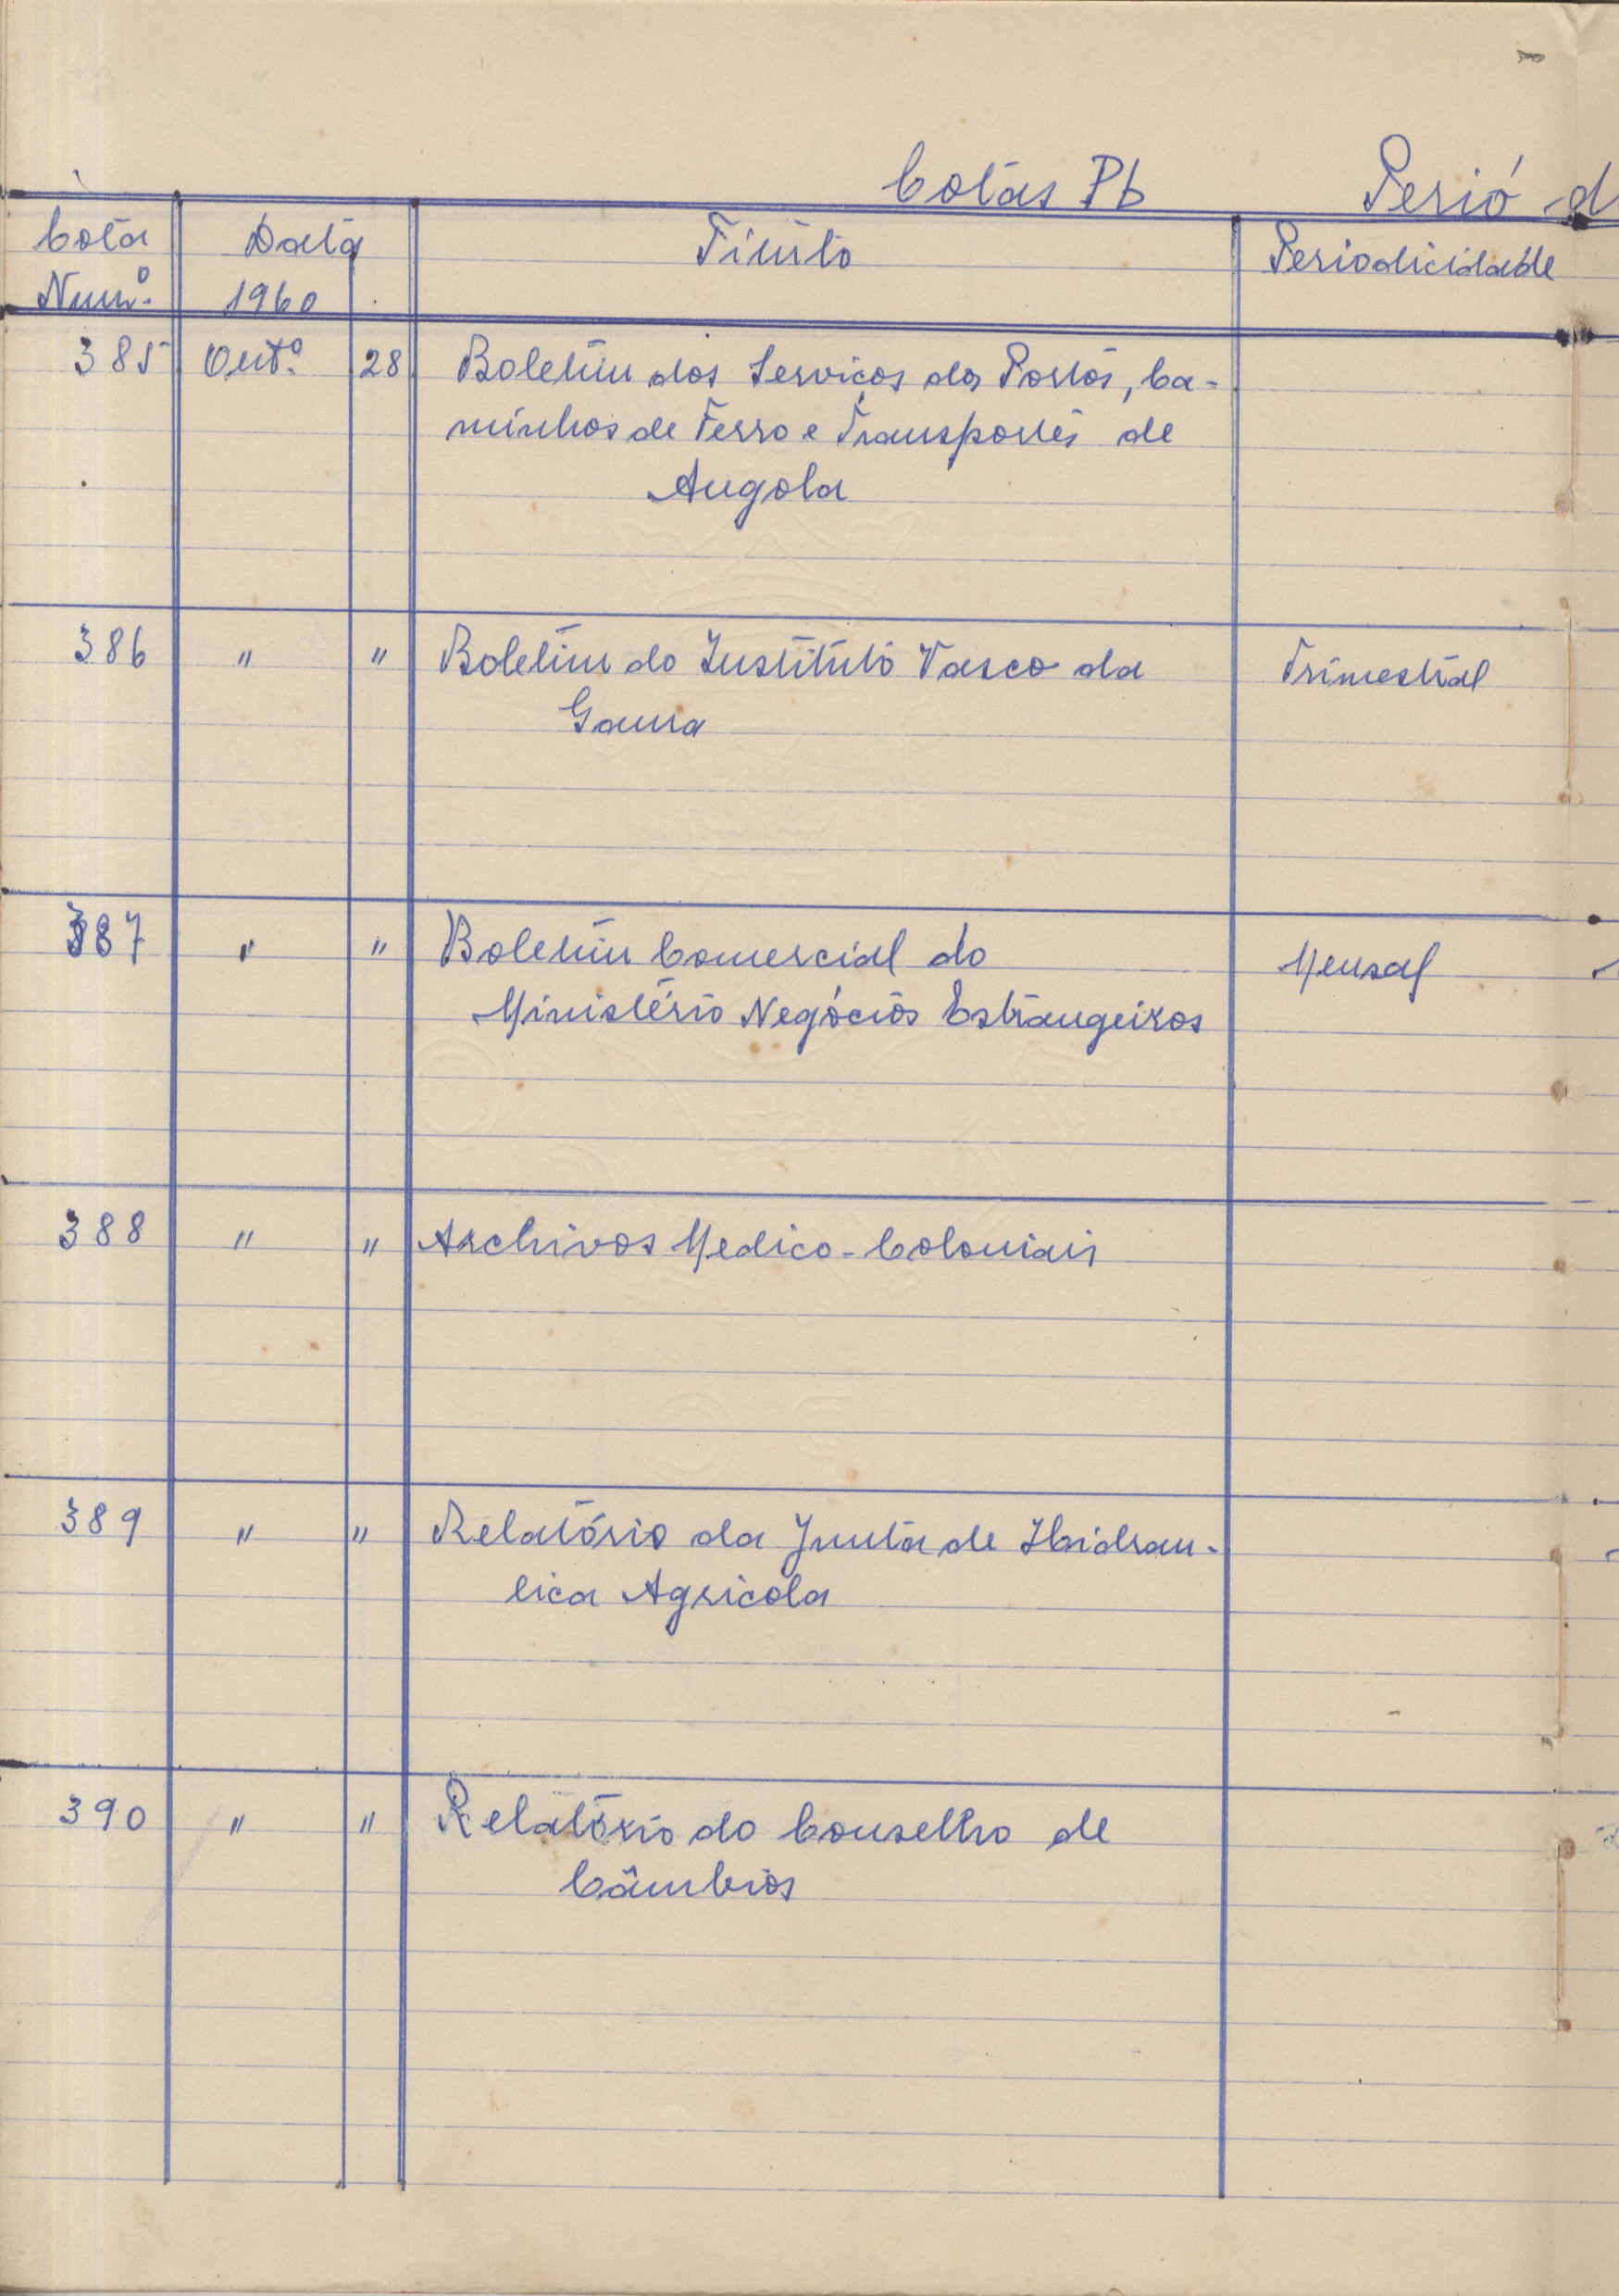 Cotas Pb Perió d
Cota Data Titulo Periodicidade
Num.º 1960
385 Out.º 28 Boletim dos Serviços dos Portos, Ca-
minhos de Ferro e Transportes de
Angola
386 " " Boletim do Instituto Vasco da Trimestral
Gama
387 " " Boletim Comercial do Mensal
Ministério Negócios Estrangeiros
388 " " Archivos Medico-Coloniais
389 " " Relatório da Junta de Hidrau-
lica Agricola
390 " " Relatório do Conselho de
Câmbios